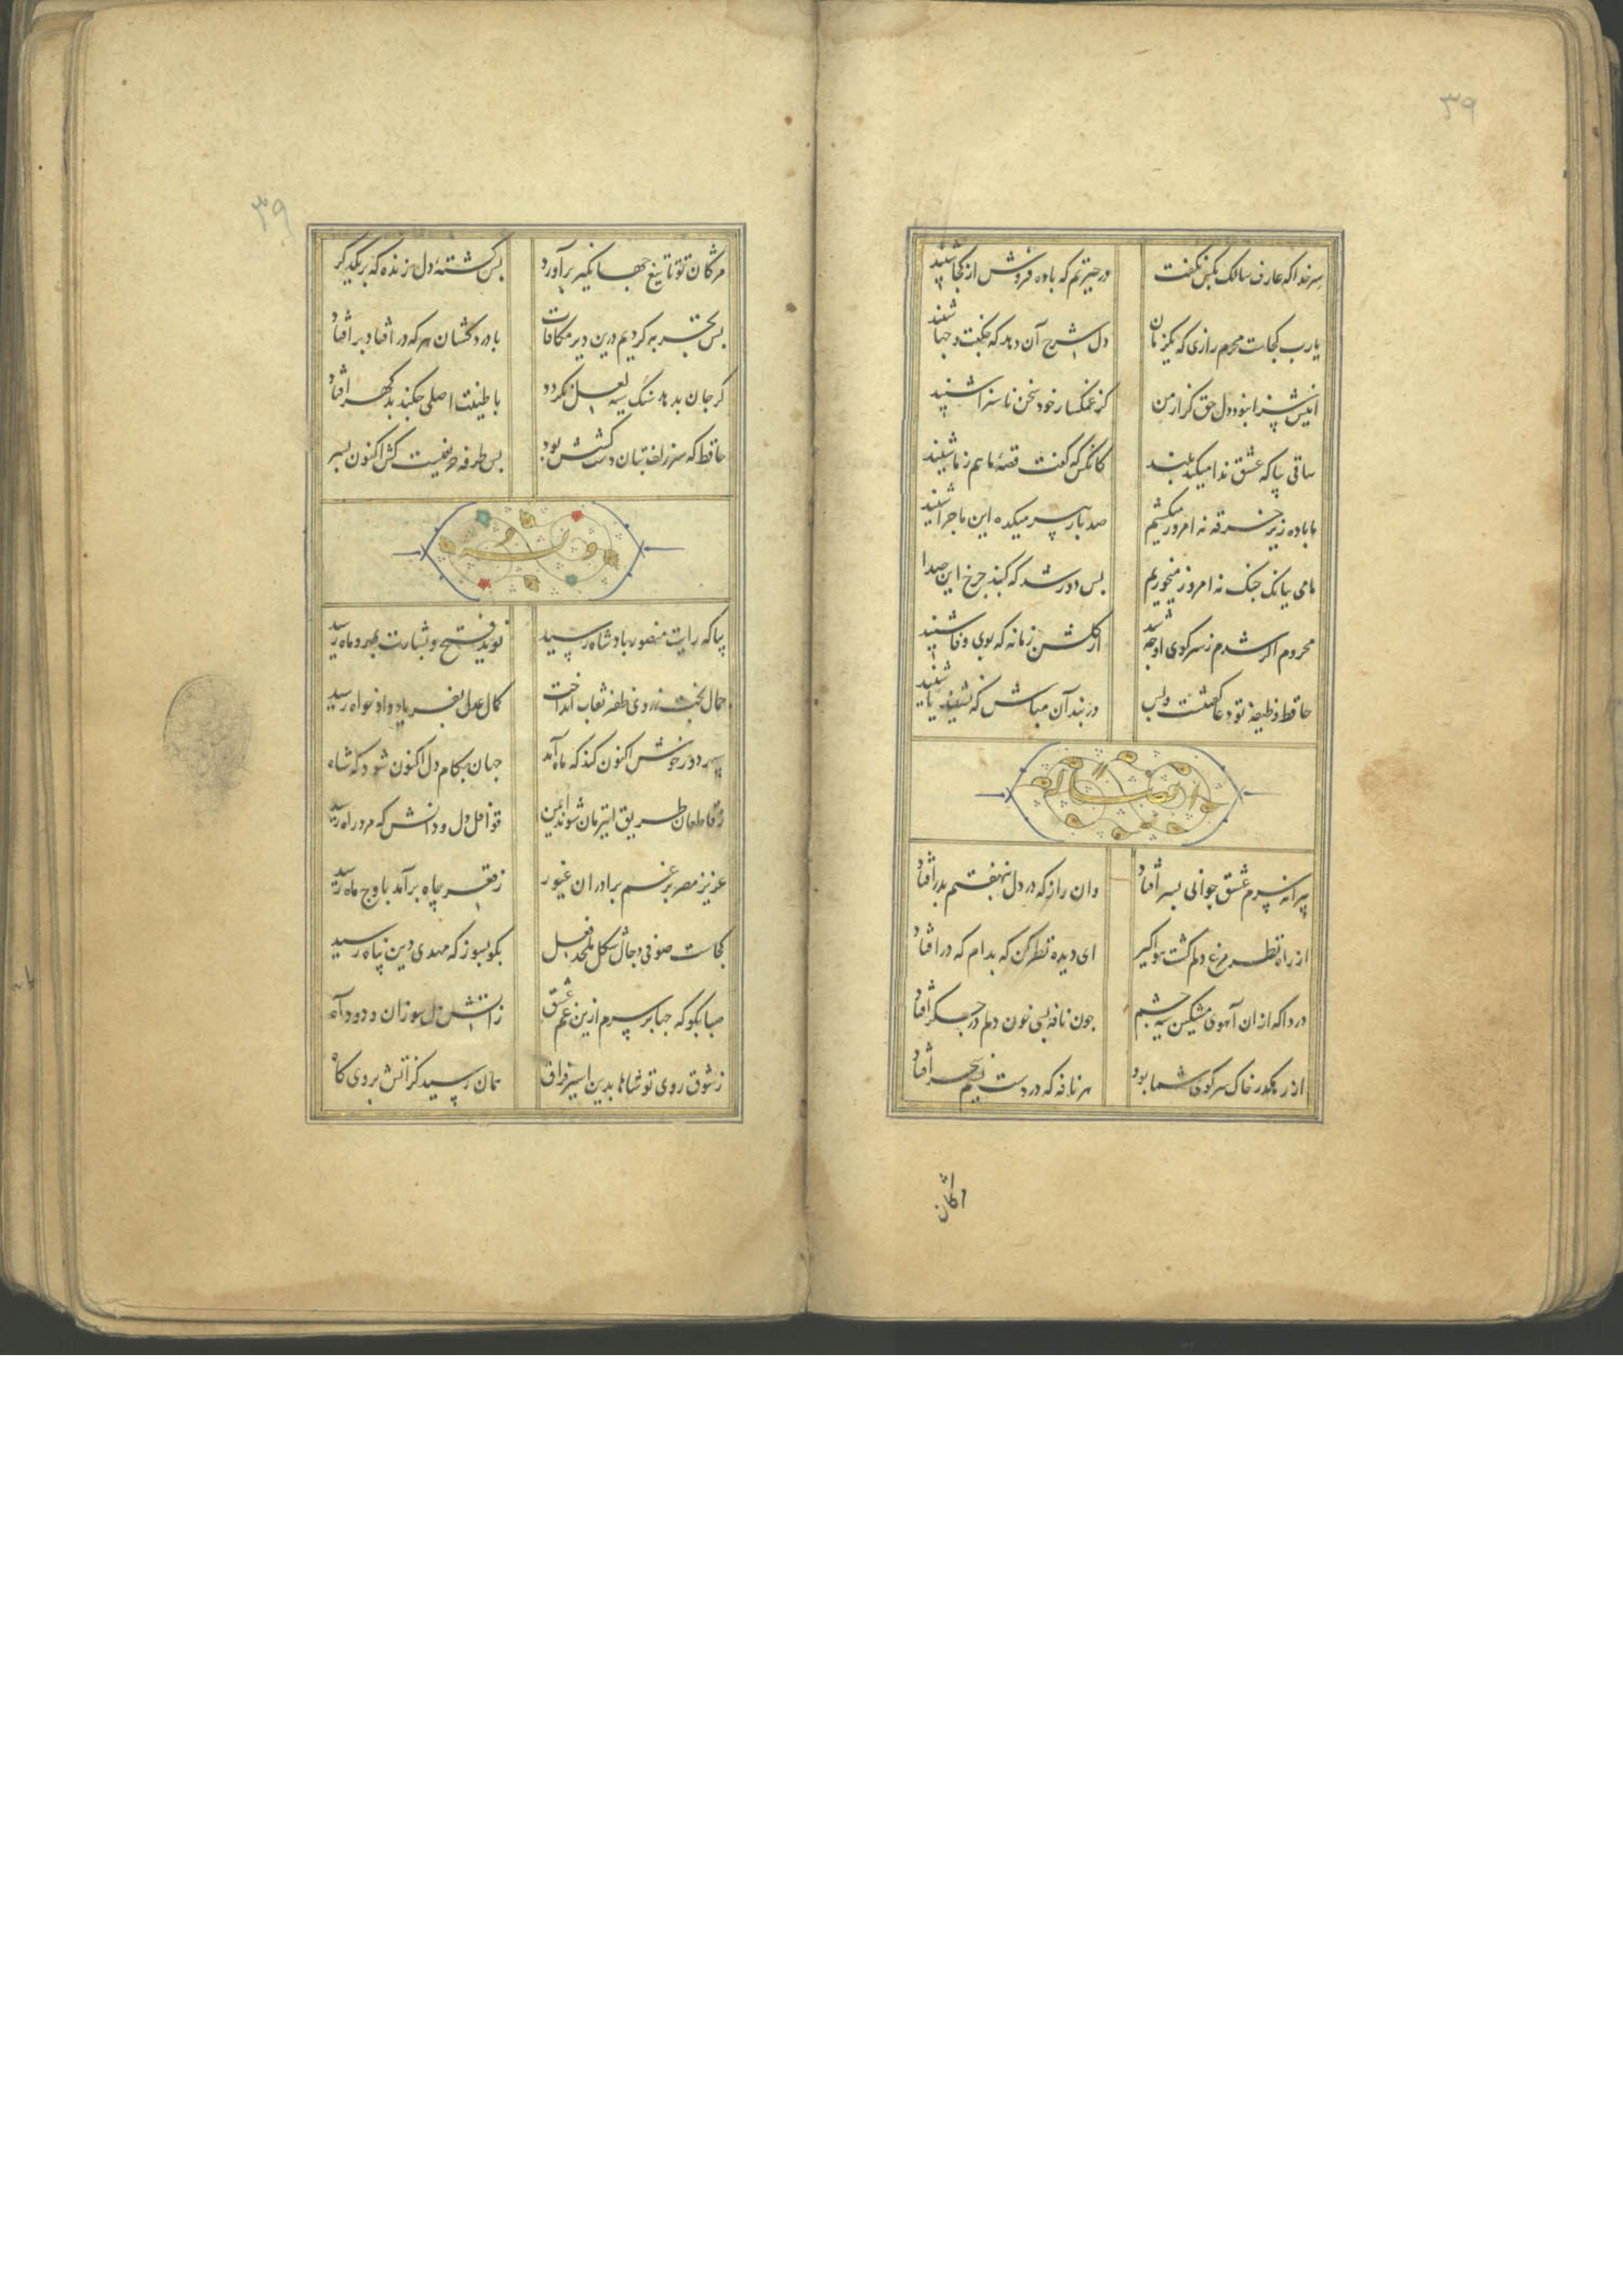 ۳۹
سر خدا که عارف سالک بکس نکفت در حیرتم که باده فروش از کجا شنید
یارب کجاست محرم رازی که یکزمان دل شرح آن دهد که چکفت و چها شنید
اینش سزا نبود دل حق گزار من کز غمگسار خود سخن ناسزا شنید
ساقی بیا که عشق ندا میکند بلند کانکس که گفت قصهٔ ما هم ز ما شنید
ما باده زیر خرقه نه امروز میکشیم صد بار پیر میکده این ماجرا شنید
ما می ببانک چنک نه امروز میخوریم بس دور شد که کنبد چرخ این صدا
محروم اگر شدم ز سر کوی او چه شد از گلشن زمانه که بوی وفا شنید
حافظ وظیفهٔ تو دعا گفتنست و بس در بند آن مباش که نشنید یا شنید
پیرانه سرم عشق جوانی بسر افتاد وان راز که در دل بنهفتم بدر افتاد
از راه نظر مرغ دلم کشت هواگیر ای دیده نظر کن که بدام که در افتاد
دردا که از ان آهوی مشکین سیه چشم چون نافه بسی خون دلم در جگر افتاد
از رهگذر خاک سر کوی شما بود هر نافه که در دست نسیم سحر افتاد
۳۹
مژگان تو تا تیغ جهانگیر برآورد بس کشتهٔ دل زنده که بر یکدیگر
بس تجربه کردیم درین دیر مکافات با درد کشان هر که در افتاد بر افتاد
گر جان بدهد سنک سیه لعل نگردد با طینت اصلی چکند بد گهر افتاد
حافظ که سر زلف بتان دست کشش بود بس طرفه حریفیست کش اکنون بسر
وله
بیا که رایت منصور پادشاه رسید نوید فتح و بشارت بمهر و ماه رسید
جمال بخت ز روی ظفر نقاب انداخت کمال عدل بفریاد دادخواه رسید
سپهر دور خوش اکنون کند که ماه آمد جهان بکام دل اکنون شود که شاه
ز قاطعان طریق این زمان شوند ایمن قوافل دل و دانش که مرد راه رسید
عزیز مصر برغم برادران غیور ز قعر چاه برآمد باوج ماه رسید
کجاست صوفی دجال شکل ملحد فعل بگو بسوز که مهدی دین پناه رسید
صبا بگو که چها بر سرم ازین غم عشق ز آتش دل سوزان و دود آه
ز شوق روی تو شاها بدین اسیر فراق همان رسید کز آتش بروی کاه